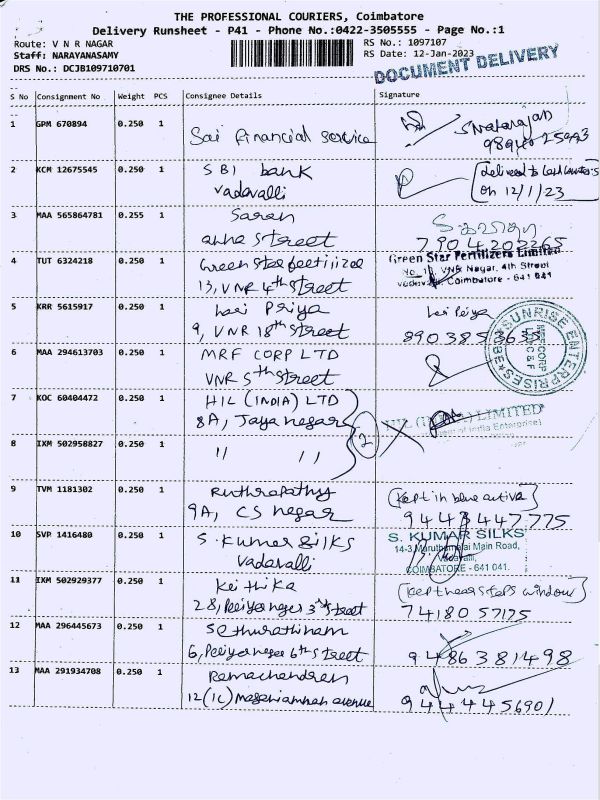 THE PROFESSIONAL COURIERS, Coimbatore
Delivery Runsheet - P41 - Phone No.:0422-3505555 - Page No.:1
Route: V N R NAGAR
RS No.: 1097107
Staff: NARAYANASAMY
RS Date: 12-Jan-2023
DRS No.: DCJB109710701
DOCUMENT DELIVERY
S No Consignment No Weight PCS Consignee Details Signature
1 GPM 670894 0.250 1
Sai Financial Service
2 KCM 12675545 0.250 1 SBI bank
vadavalli
delivered to
on 12/1/23
3 MAA 565864781 0.255 1 Saran
anna Street
7904202265
4 TUT 6324218 0.250 1
13, VNR 4th Street
Green Star Fertilizers Limited
VNR Nagar, 4th Street
Coimbatore - 641 041
5 KRR 5615917 0.250 1 Hari Priya
9, VNR 18th Street
Hari Priya
SUNRISE ENTERPRISES
6 MAA 294613703 0.250 1 MRF CORP LTD
VNR 5th Street
7 KOC 60404472 0.250 1 HIL (INDIA) LTD
8A, Jaya nagar
2
HIL (INDIA) LIMITED
of India Enterprise)
8 IXM 502958827 0.250 1 " "
9 TVM 1181302 0.250 1 Ruthrapathy
9A, CS nagar
(Kept in blue activa)
9443447775
10 SVP 1416480 0.250 1 S. Kumar Silks
Vadavalli
S. KUMAR SILKS
14-3, Maruthamalai Main Road,
Vadavalli,
COIMBATORE - 641 041.
11 IXM 502929377 0.250 1 Keithika
28, Periyar nagar 3rd Street
(Kept near steps window)
74180 57175
12 MAA 296445673 0.250 1 Sethurathinam
6, Periyar nagar 6th Street
9486381498
13 MAA 291934708 0.250 1 Ramachandran
12(1C) avenue
9444456901